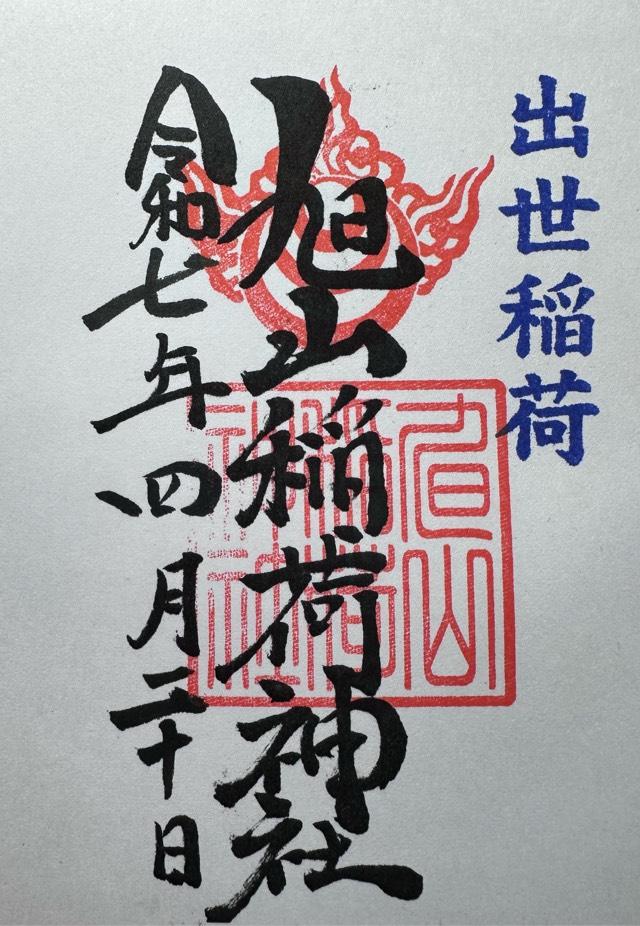 出世稲荷
旭山稲荷神社
令和七年四月二十日
旭山
稲荷
神社